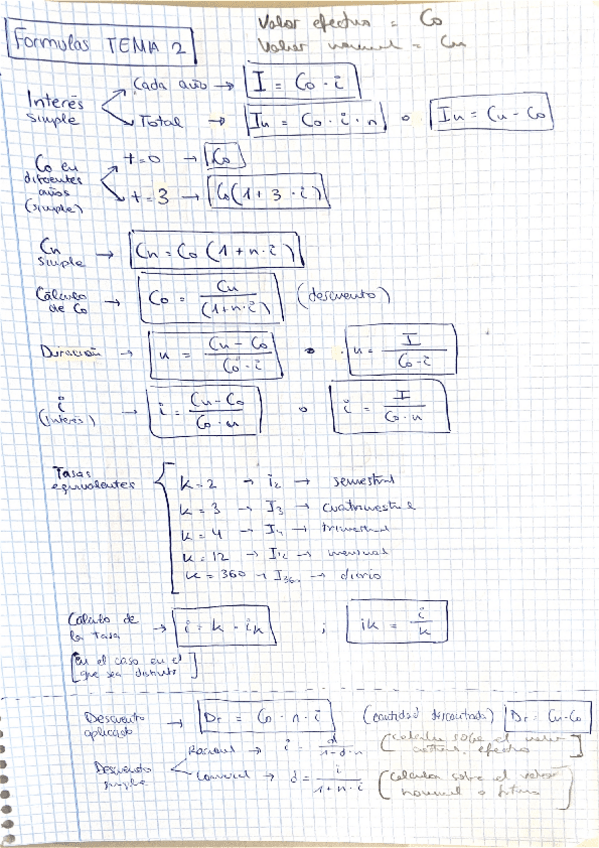 Valor efectivo = Co
Formulas TEMA 2
Valor nominal = Cn
Interés simple
Cada año → I = Co · i
Total → In = Co · i · n o In = Cn - Co
Co en diferentes años (simple)
t = 0 → Co
t = 3 → Co(1+3·i)
Cn simple → Cn = Co (1+n·i)
Cálculo de Co → Co = Cn / (1+n·i) (descuento)
Duración → n = Cn - Co / Co · i o n = I / Co · i
i (interés) → i = Cn - Co / Co · n o i = I / Co · n
Tasas equivalentes
k = 2 → i2 → semestral
k = 3 → I3 → cuatrimestral
k = 4 → I4 → trimestral
k = 12 → I12 → mensual
k = 360 → I360 → diario
Cálculo de la tasa → i = k · ik ; ik = i / k
[en el caso en el que sea distinto]
Descuento aplicado → Dr = Co · n · i (cantidad descontada) Dr = Cn - Co
Descuento simple
Racional → i = d / 1-d·n (calcula sobre el valor efectivo)
Comercial → d = i / 1+n·i (calcula sobre el valor nominal o futuro)